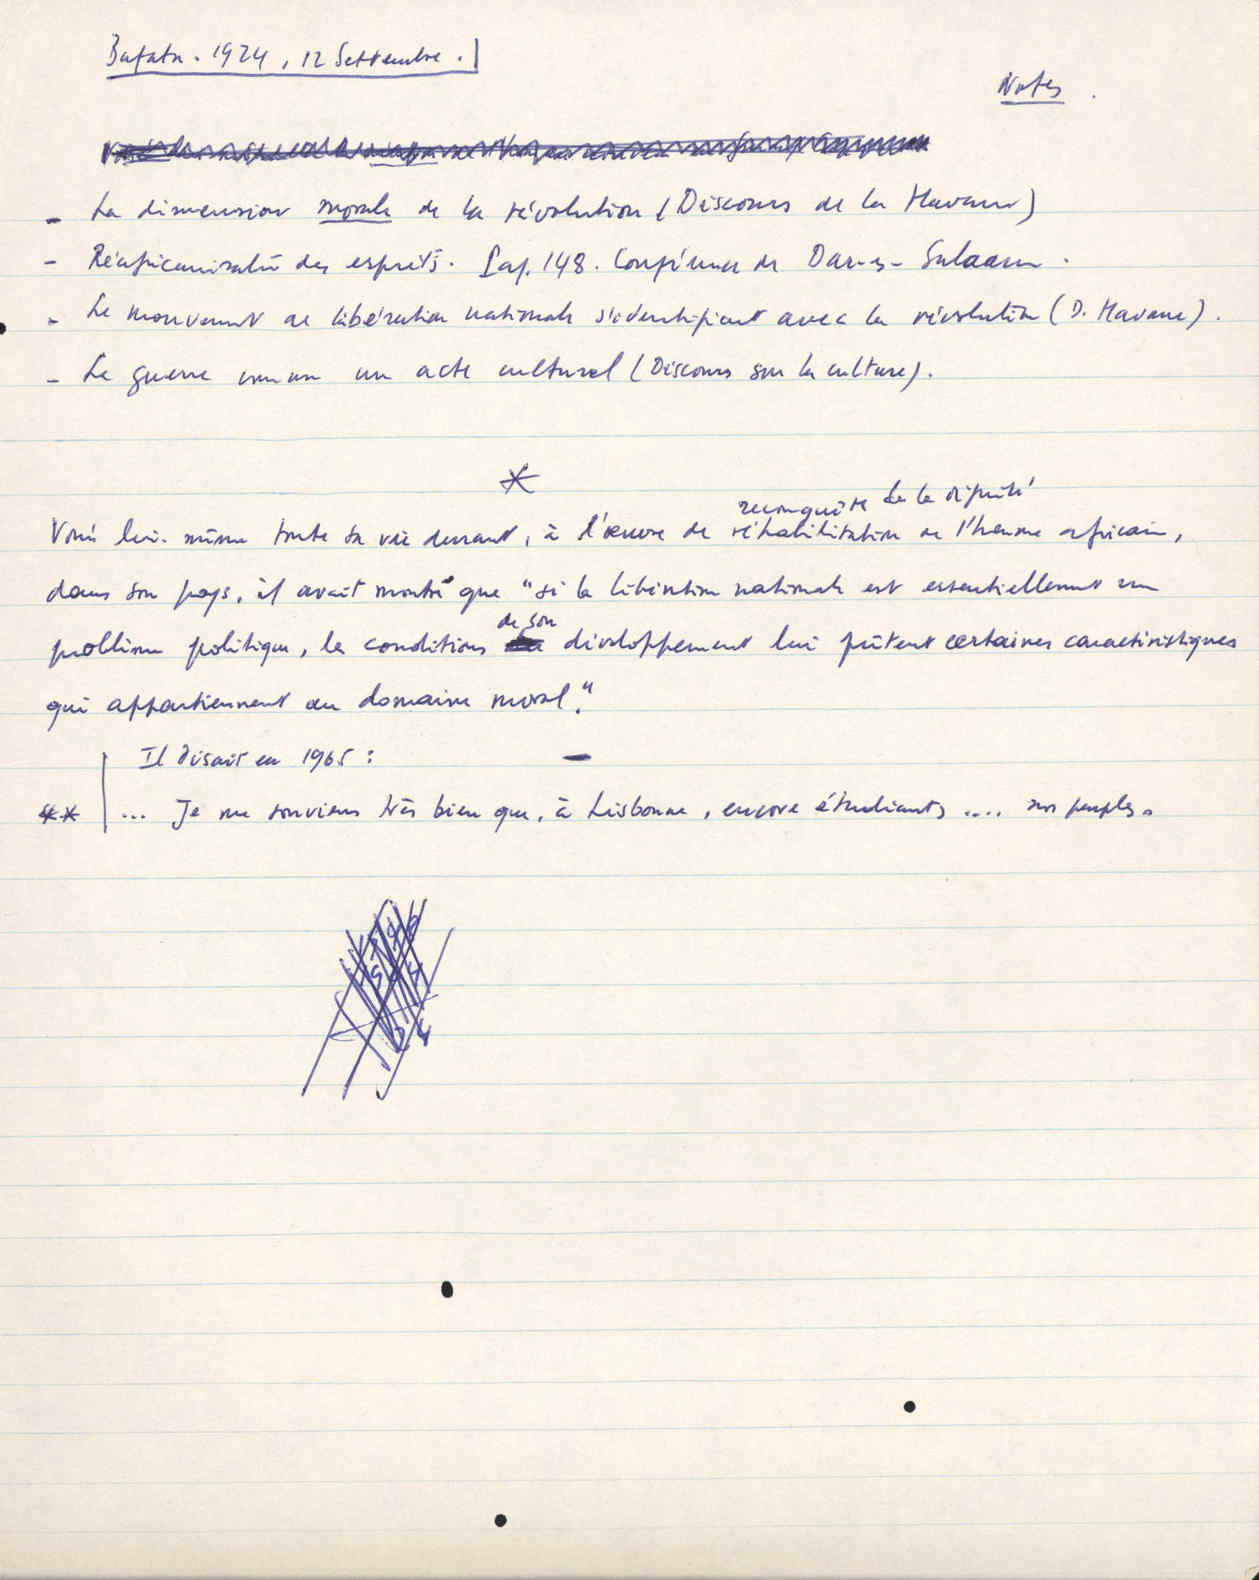 Bafata. 1924, 12 Septembre.
Notes.
- La dimension morale de la révolution (Discours de la Havane)
- Réafricanisation des esprits. Pag. 148. Conférence de Dar-es-Salaam.
- Le mouvement de libération nationale s'identifiant avec la révolution (D. Havane).
- La guerre comme un acte culturel (Discours sur la culture).
*
reconquête de la dignité
Voué lui-même toute sa vie durant, à l'œuvre de réhabilitation de l'homme africain,
dans son pays, il avait montré que "si la libération nationale est essentiellement un
de son
problème politique, les conditions développement lui prêtent certaines caractéristiques
qui appartiennent au domaine moral."
Il disait en 1965 :
** ... Je me souviens très bien que, à Lisbonne, encore étudiants .... nos peuples.